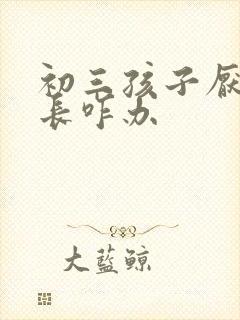 初三孩子厌
长咋办
大蓝鲸